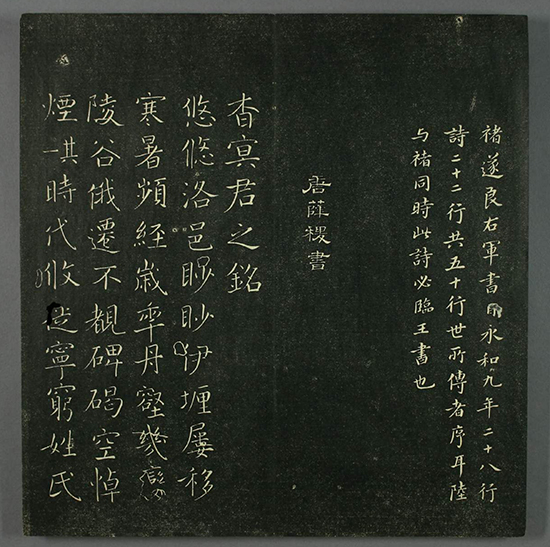 褚遂良右軍書目永和九年二十八行
詩二十二行共五十行世所傳者序耳陸
与褚同時此詩必臨王書也
唐薛稷書
杳冥君之銘
悠悠洛邑眇眇伊壥屢移
寒暑頻經歲年丹壑幾變
陵谷俄遷不覩碑碣空悼
煙其一時代攸寧窮姓氏